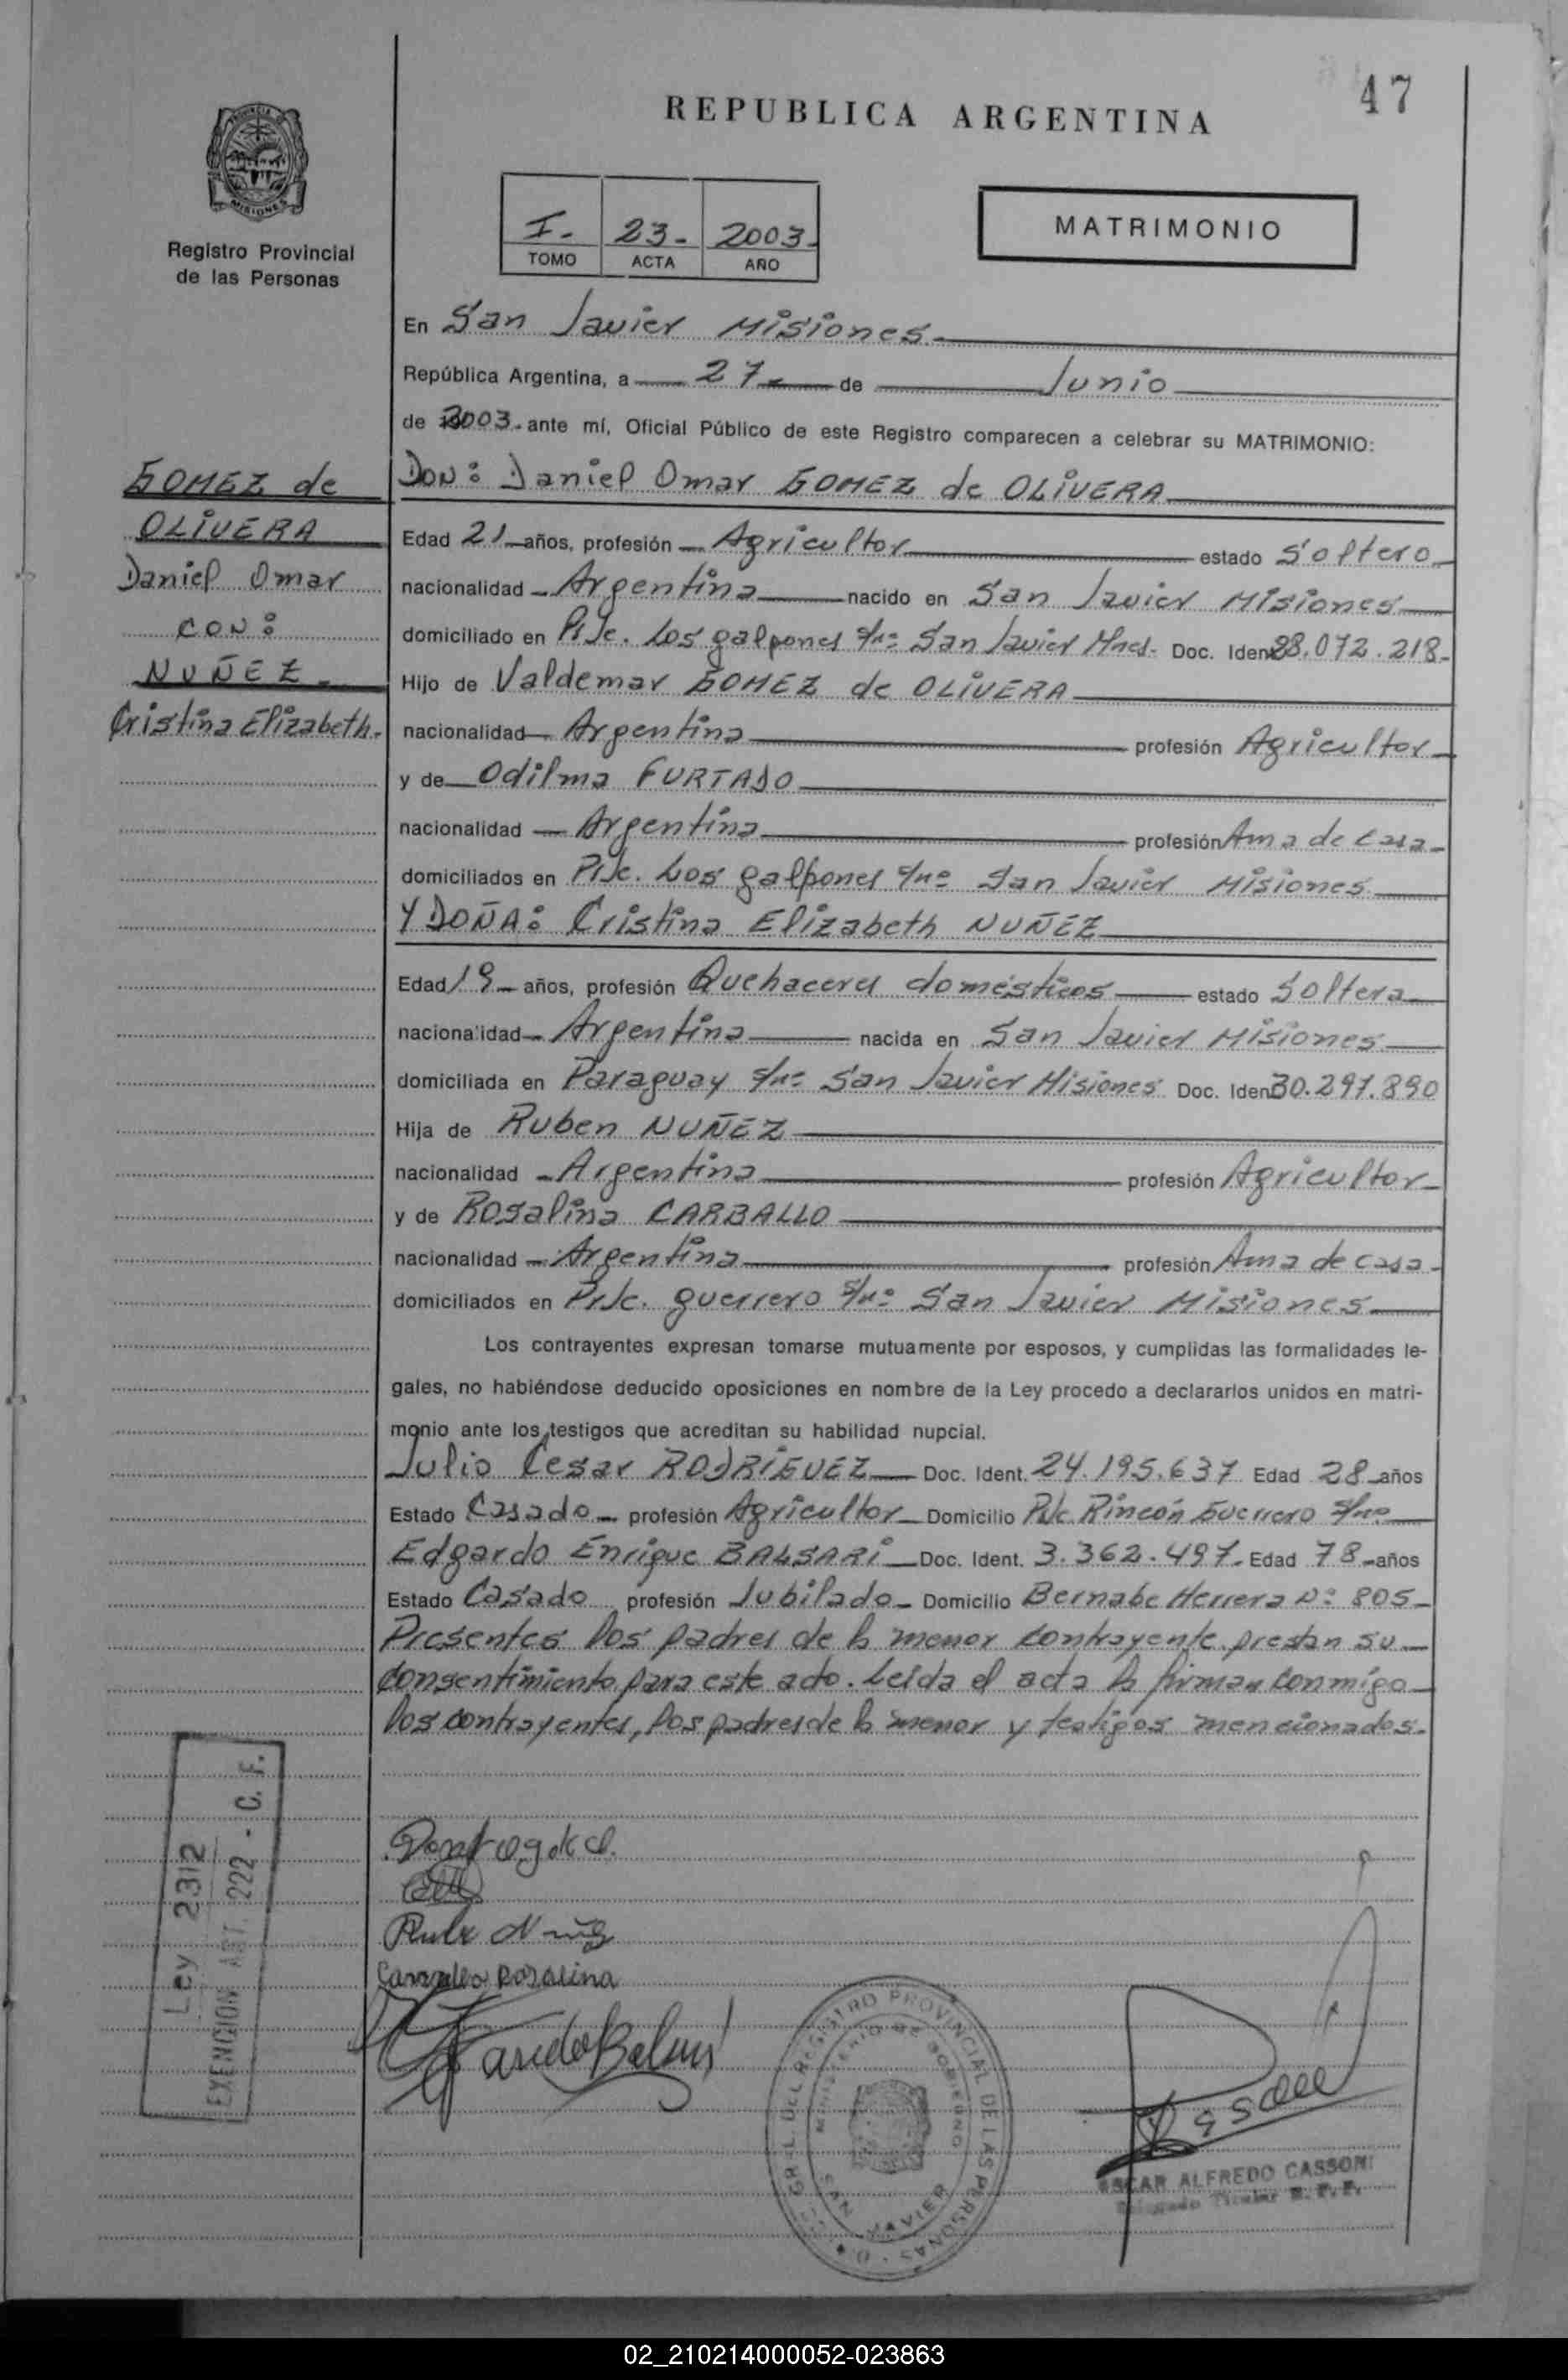 47
REPUBLICA ARGENTINA
MISIONES
Registro Provincial
de las Personas
I- 23- 2003-
TOMO ACTA AÑO
MATRIMONIO
En San Javier Misiones.
República Argentina, a 27 de Junio
de 2003 ante mí, Oficial Público de este Registro comparecen a celebrar su MATRIMONIO:
GOMEZ de
OLIVERA
Daniel Omar
CON:
NUÑEZ
Cristina Elizabeth.
DON: Daniel Omar GOMEZ de OLIVERA
Edad 21 años, profesión Agricultor estado Soltero
nacionalidad Argentina nacido en San Javier Misiones
domiciliado en Pje. Los galpones s/nº San Javier Mnes. Doc. Iden 28.072.218-
Hijo de Valdemar GOMEZ de OLIVERA
nacionalidad Argentina profesión Agricultor
y de Odilma FURTADO
nacionalidad Argentina profesión Ama de casa
domiciliados en Pje. Los galpones s/nº San Javier Misiones
Y DOÑA: Cristina Elizabeth NUÑEZ
Edad 19 años, profesión Quehaceres domésticos estado Soltera
nacionalidad Argentina nacida en San Javier Misiones
domiciliada en Paraguay s/nº San Javier Misiones Doc. Iden 30.297.890
Hija de Ruben NUÑEZ
nacionalidad Argentina profesión Agricultor
y de Rosalina CARBALLO
nacionalidad Argentina profesión Ama de casa
domiciliados en Pje. guerrero s/nº San Javier Misiones
Los contrayentes expresan tomarse mutuamente por esposos, y cumplidas las formalidades le-
gales, no habiéndose deducido oposiciones en nombre de la Ley procedo a declararlos unidos en matri-
monio ante los testigos que acreditan su habilidad nupcial.
Julio Cesar RODRIGUEZ Doc. Ident. 24.195.637 Edad 28 años
Estado Casado profesión Agricultor Domicilio Pje. Rincón Guerrero s/nº
Edgardo Enrique BALSARI Doc. Ident. 3.362.497 Edad 78 años
Estado Casado profesión Jubilado Domicilio Bernabe Herrera Nº 805
Presentes los padres de la menor contrayente prestan su
consentimiento para este acto. Leida el acta la firman conmigo
los contrayentes, los padres de la menor y testigos mencionados.
Ley 2312
EXENCION ART. 222 - C. F.
Carvallo Rosalina
GRAL. DEL REGISTRO PROVINCIAL DE LAS PERSONAS
MINISTERIO DE GOBIERNO
SAN JAVIER
OSCAR ALFREDO CASSONI
Delegado Titular R. P. P.
02_210214000052-023863